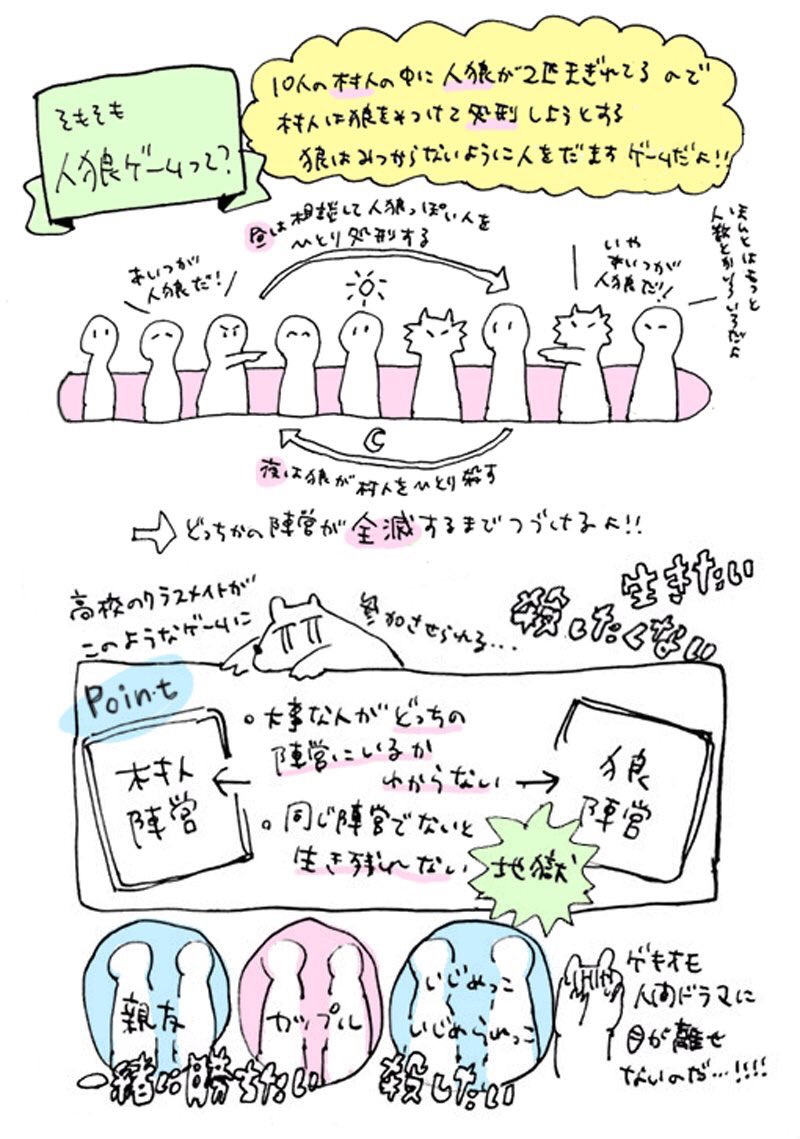 そもそも
人狼ゲームって?
10人の村人の中に人狼が2匹まぎれてるので
村人は狼をみつけて処刑しようとする
狼はみつからないように人をだますゲームだよ!!
昼は相談して人狼っぽい人を
ひとり処刑する
あいつが
人狼だ!
いや
あいつが
人狼だ!
ほんとはもっと
人数とかいろいろだよ
夜は狼が村人をひとり殺す
⇒どっちかの陣営が全滅するまでつづけるよ!!
高校のクラスメイトが
このようなゲームに
参加させられる...
生きたい
殺したくない
Point
村人
陣営
。大事な人がどっちの
陣営にいるか
わからない
。同じ陣営でないと
生き残れない
狼
陣営
地獄
親友
カップル
いじめっこ
いじめられっこ
一緒に勝ちたい
殺したい
ゲキオモ
人間ドラマに
目が離せ
ないのだ…!!!!